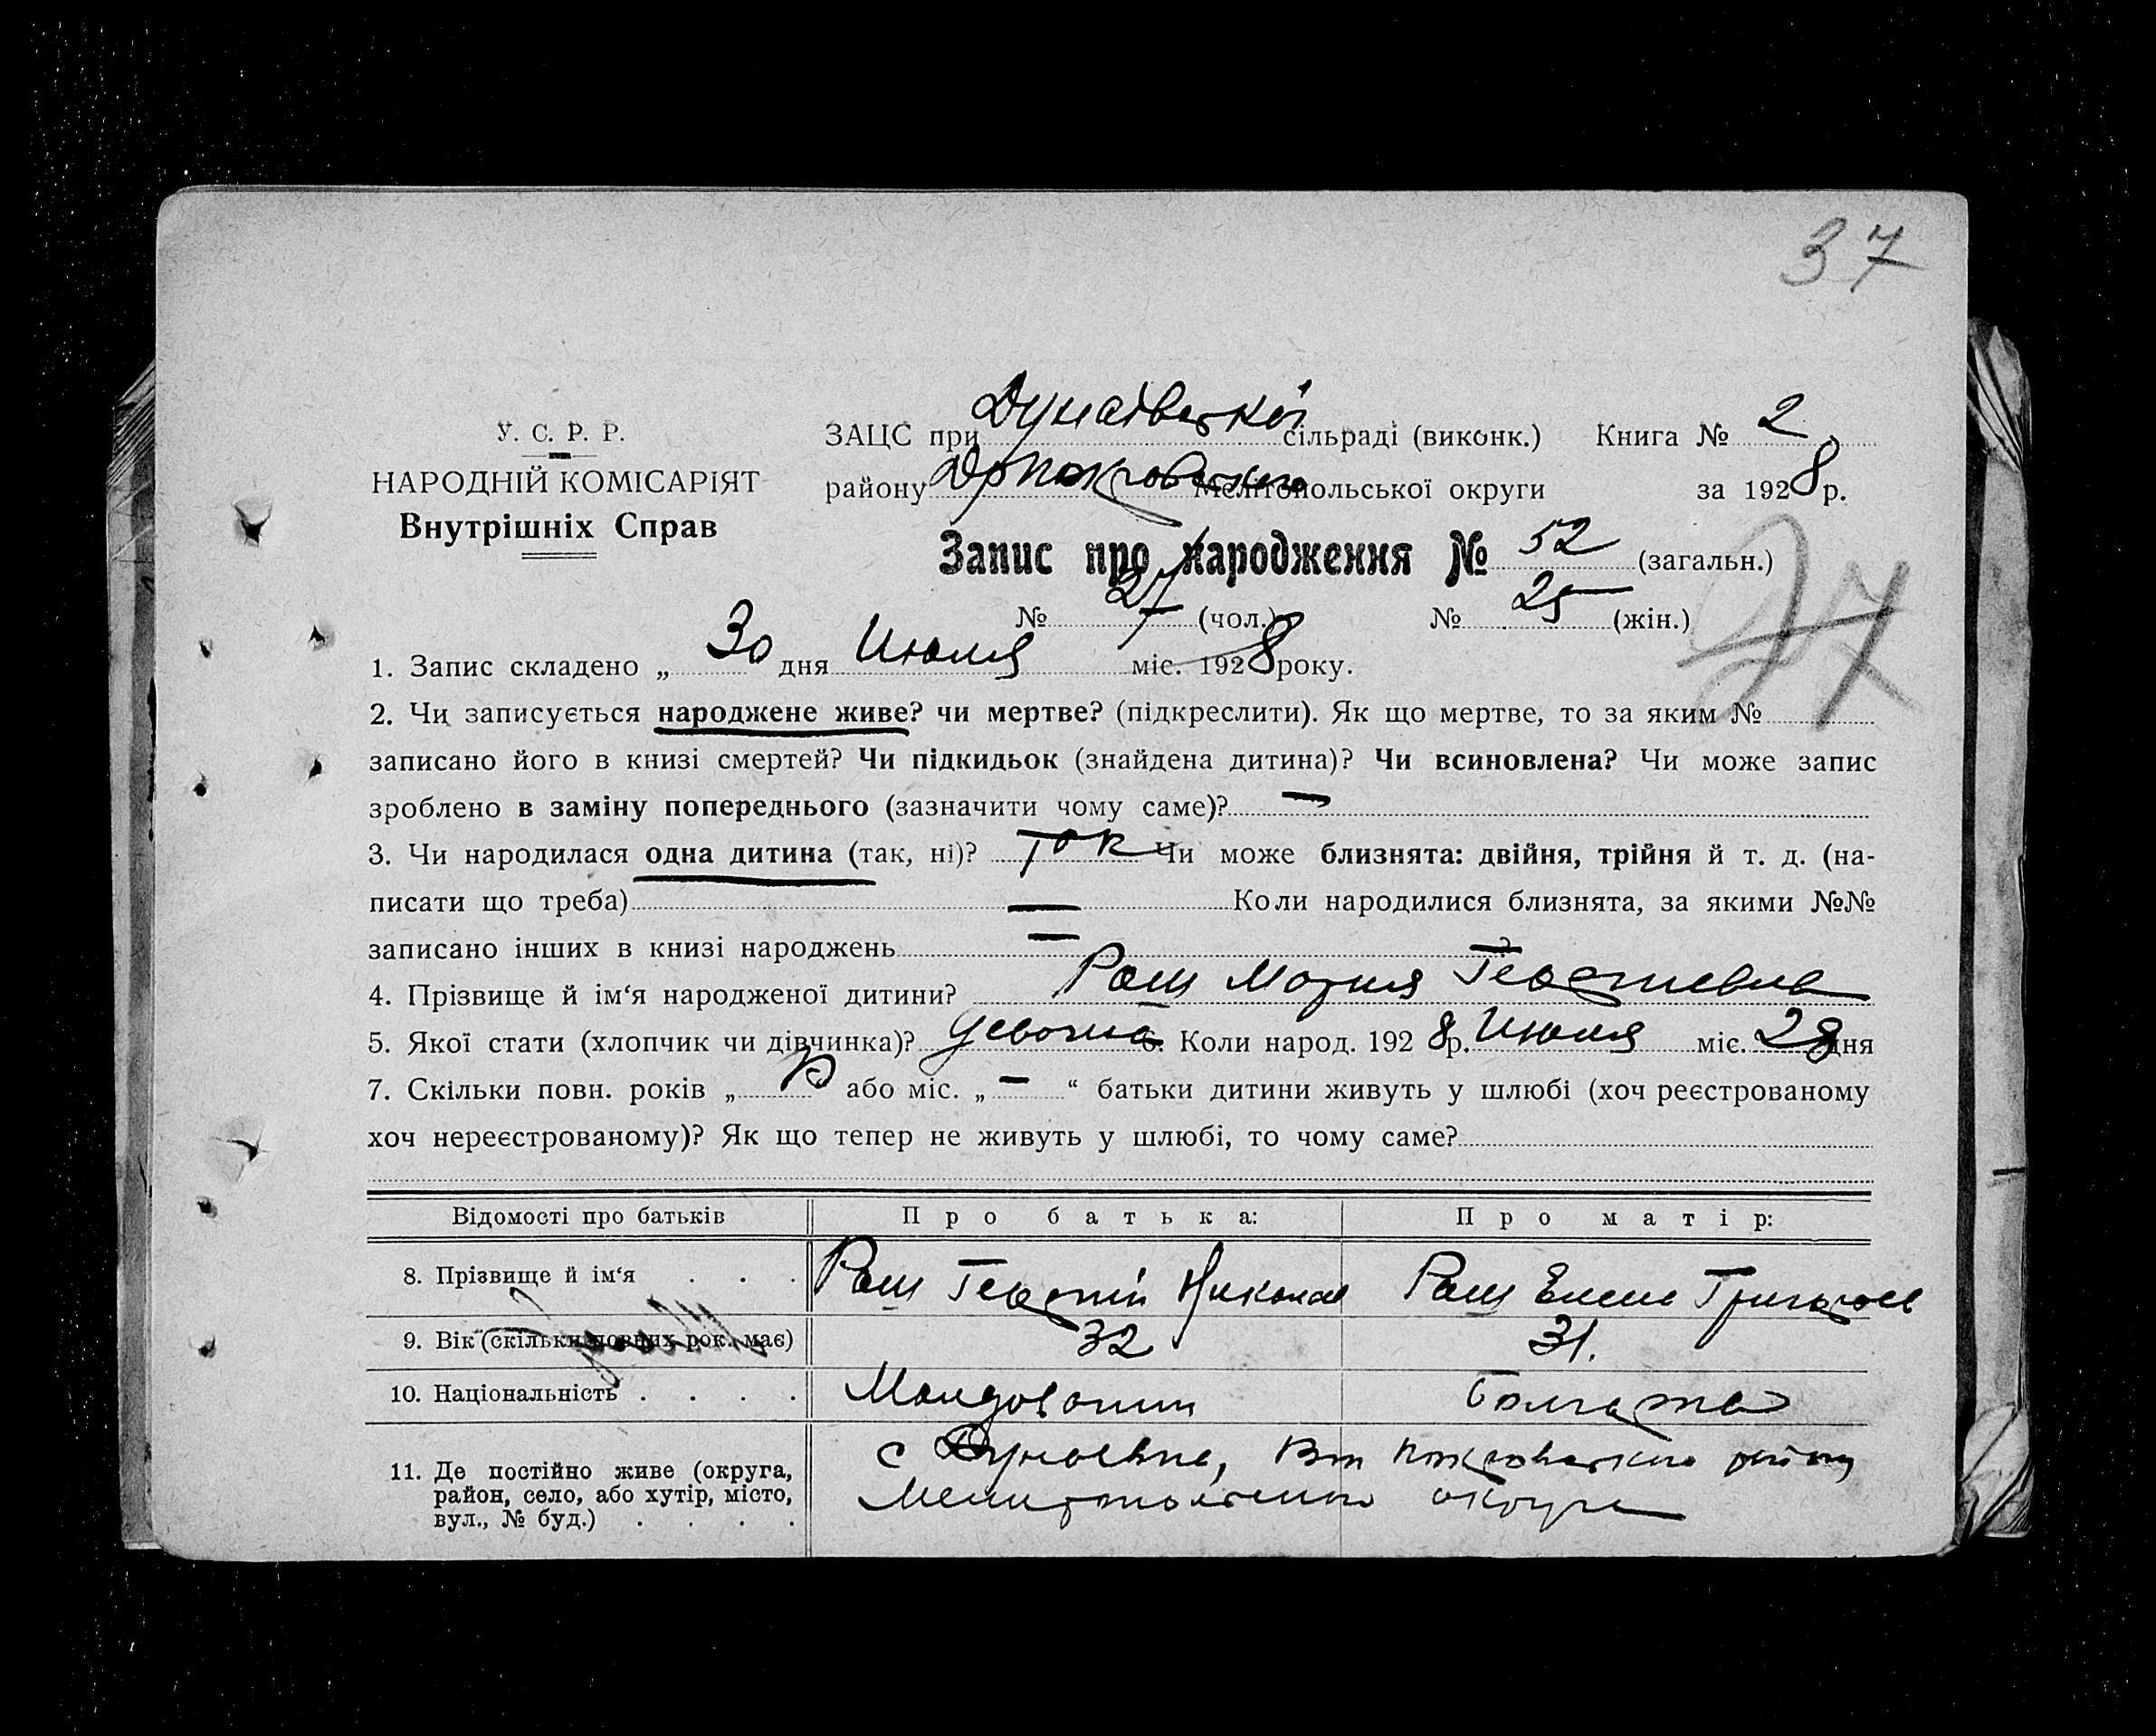 37
У. С. Р. Р.
НАРОДНІЙ КОМІСАРІЯТ
Внутрішніх Справ
ЗАЦС при Дунаївської сільраді (виконк.) Книга № 2
району Мелітопольської округи за 1928 р.
Запис про народження № 52 (загальн.)
№ 27 (чол.) № 25 (жін.)
77
1. Запис складено „ 30 дня Июля міс. 1928 року.
2. Чи записується народжене живе? чи мертве? (підкреслити). Як що мертве, то за яким №
записано його в книзі смертей? Чи підкидьок (знайдена дитина)? Чи всиновлена? Чи може запис
зроблено в заміну попереднього (зазначити чому саме)? —
3. Чи народилася одна дитина (так, ні)? Так Чи може близнята: двійня, трійня й т. д. (на-
писати що треба) — Коли народилися близнята, за якими №№
записано інших в книзі народжень —
4. Прізвище й ім‘я народженої дитини? Раш Мария Георгиевна
5. Якої стати (хлопчик чи дівчинка)? девочка 6. Коли народ. 1928 р. Июля міс. 28 дня
7. Скільки повн. років „ або міс. „ — “ батьки дитини живуть у шлюбі (хоч реєстрованому
хоч нереєстрованому)? Як що тепер не живуть у шлюбі, то чому саме?
Відомості про батьків Про батька: Про матір:
8. Прізвище й ім‘я . . . Раш Георгий Николае Раш Елена Григорьев
9. Вік (скільки повних рок. має) 32 31.
10. Національність . . . . Молдованин Болгарка
11. Де постійно живе (округа, с Дунаевка, Покровского району
район, село, або хутір, місто, Мелитопольского округа
вул., № буд.) . . . .